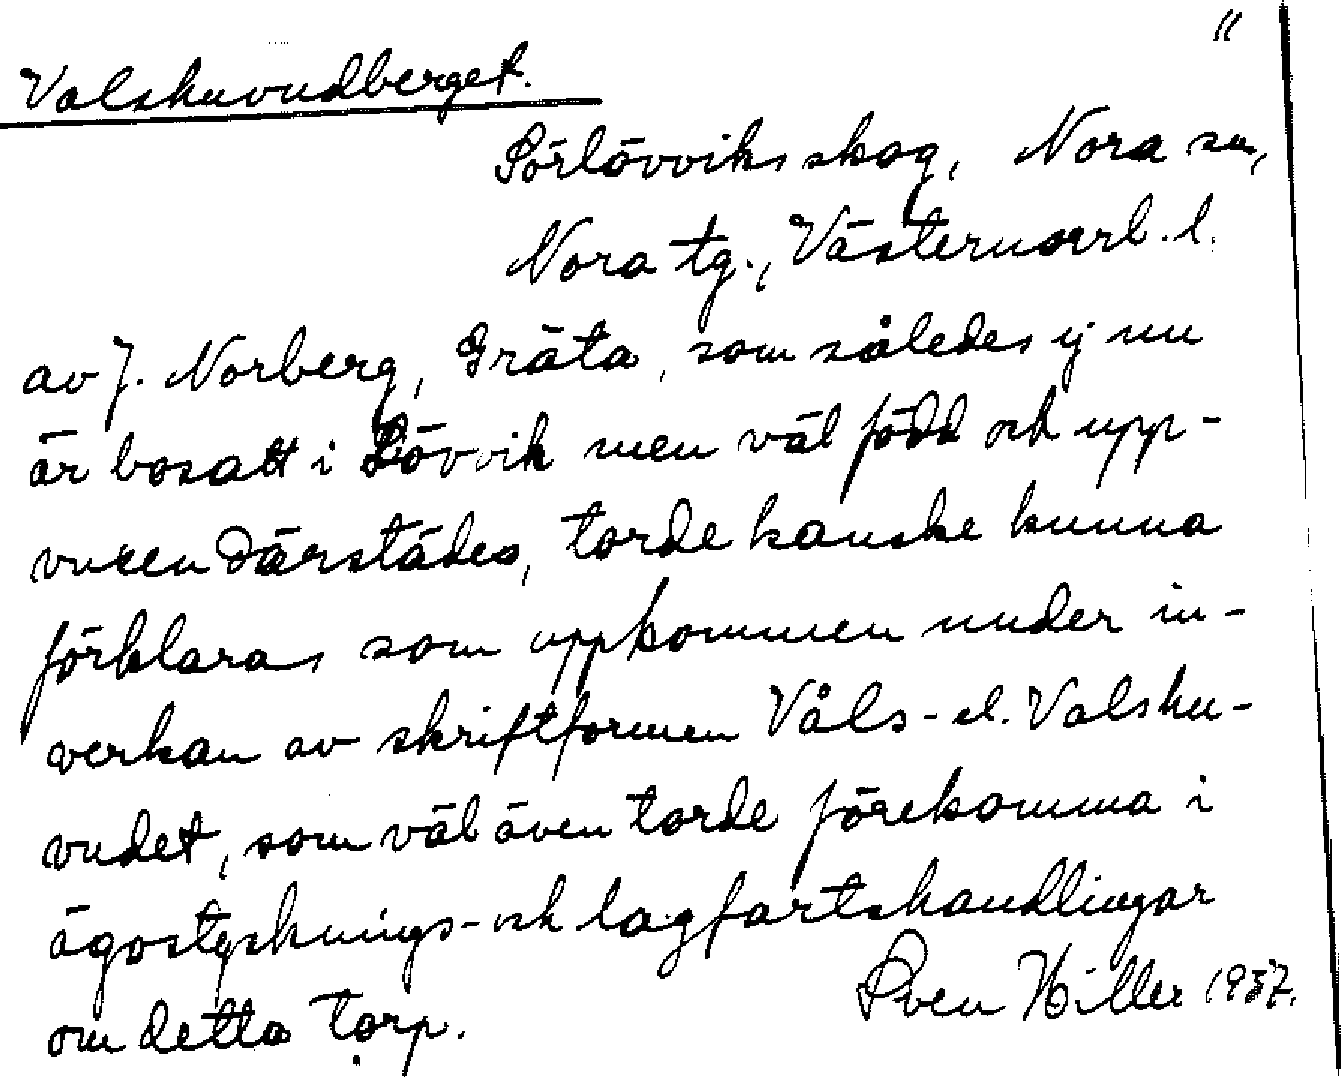 11
Valshuvudberget.
Sörlövviks skog, Nora sn,
Nora tg., Västernorrl. l.
av J. Norberg, Gräta, som således ej nu
är bosatt i Lövvik men väl född och upp-
vuxen därstädes, torde kanske kunna
förklaras som uppkommen under in-
verkan av skriftformen Våls- el. Valshu-
vudet, som väl även torde förekomma i
ägostycknings- och lagfartshandlingar
om detta torp.
Sven Hiller 1937.